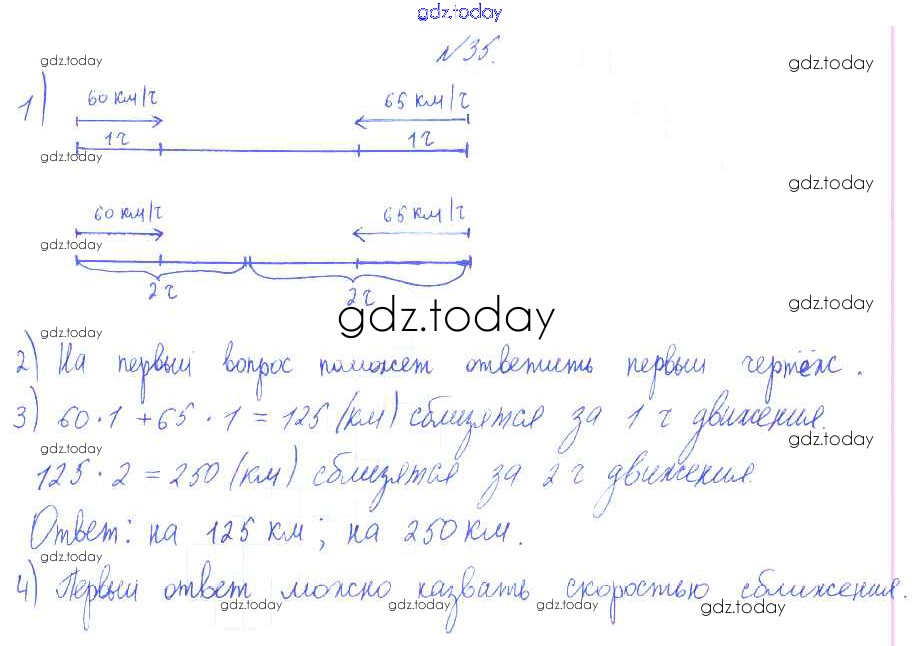 gdz.today
№35.
gdz.today
gdz.today
1)
60 км/ч 65 км/ч
1ч 1ч
gdz.today
gdz.today
60 км/ч 65 км/ч
gdz.today
2ч 2ч
gdz.today
gdz.today
gdz.today
2) На первый вопрос поможет ответить первый чертёж.
3) 60·1+65·1=125 (км) сблизятся за 1 ч движения.
gdz.today
gdz.today
125·2=250 (км) сблизятся за 2 ч движения.
Ответ: на 125 км; на 250 км.
gdz.today
gdz.today
4) Первый ответ можно назвать скоростью сближения.
gdz.today gdz.today gdz.today gdz.today